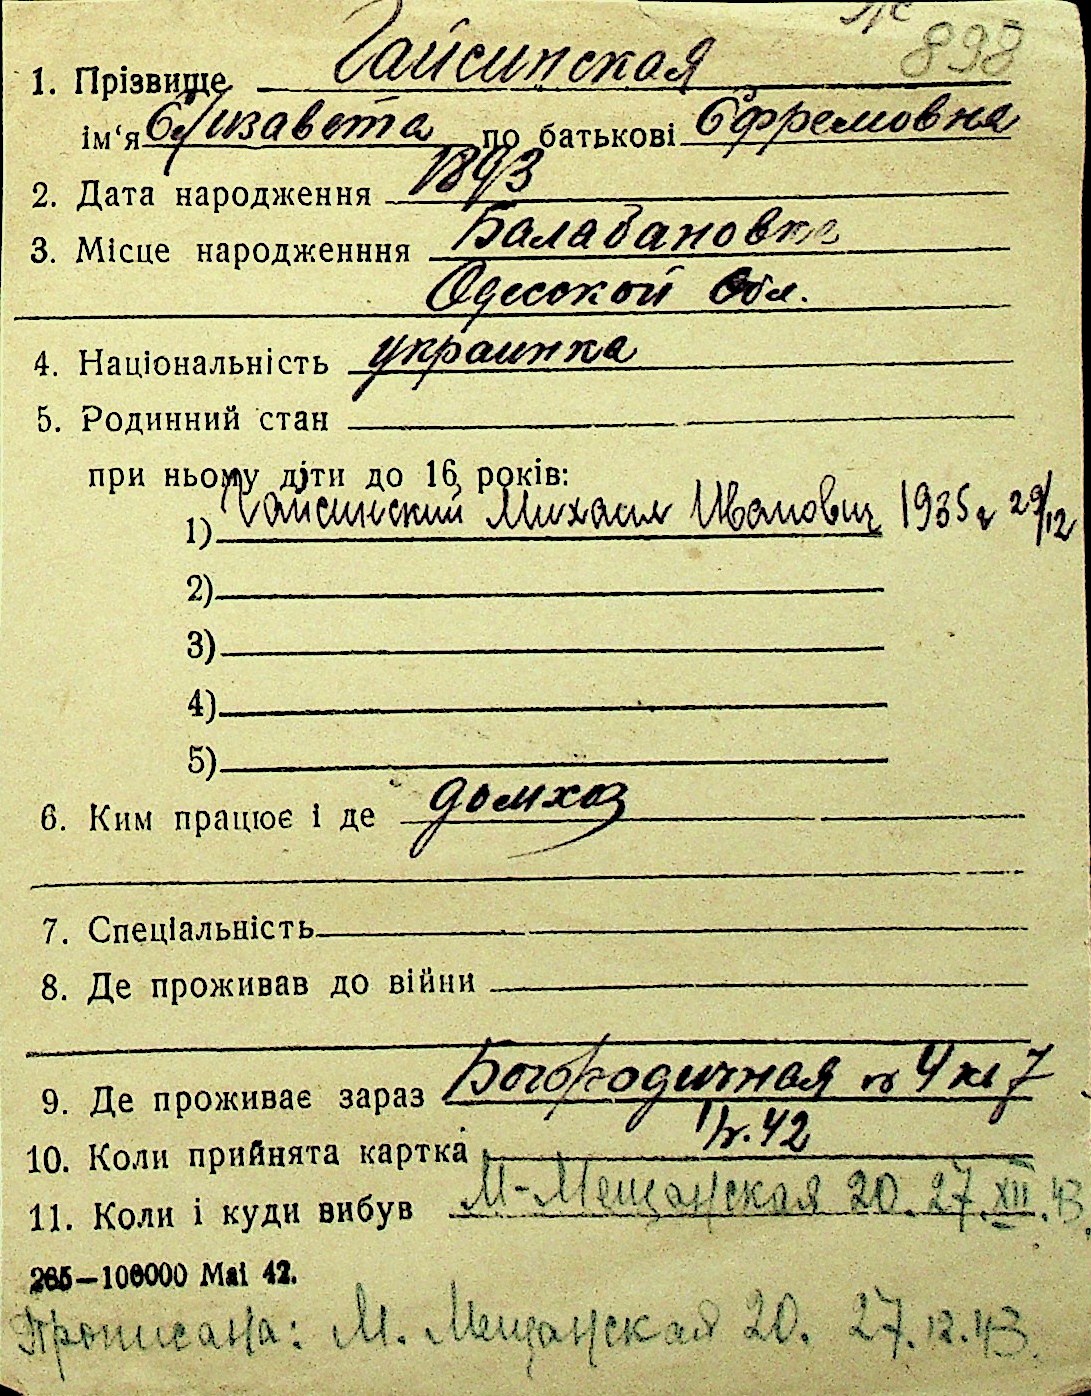 898
1. Прізвище Гайсинская
ім‘я Елизавета по батькові Ефремовна
2. Дата народження 1893
3. Місце народженння Балабановке
Одесской Обл.
4. Національність украинка
5. Родинний стан
при ньому діти до 16 років:
1) Гайсинский Михаил Иванович 1935 г 29/12
2)
3)
4)
5)
6. Ким працює і де домхоз
7. Спеціальність
8. Де проживав до війни
9. Де проживає зараз Богородичная № 4 кв 7
10. Коли прийнята картка 42
11. Коли і куди вибув М-Мещанская 20. 27.XII.43.
265—100000 Mai 42.
Прописана: М. Мещанская 20. 27.12.43.